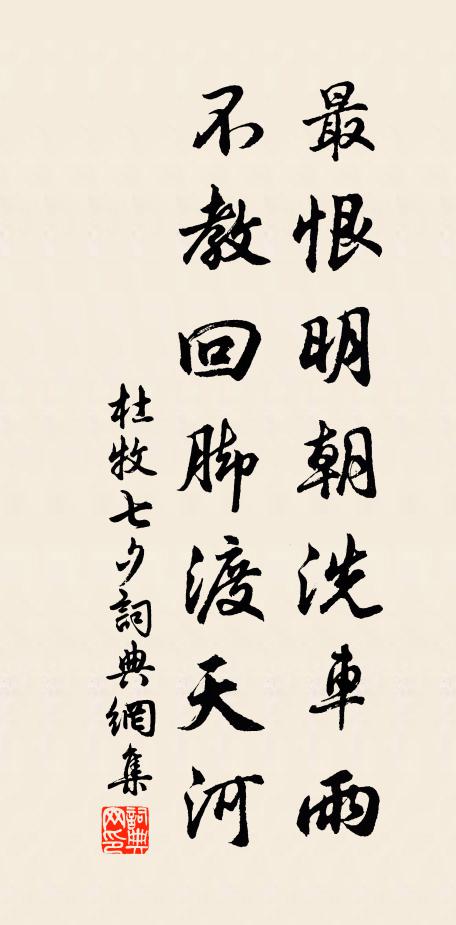 最恨明朝洗車雨
不教回脚渡天河
杜牧七夕詞典網集
詞典网印